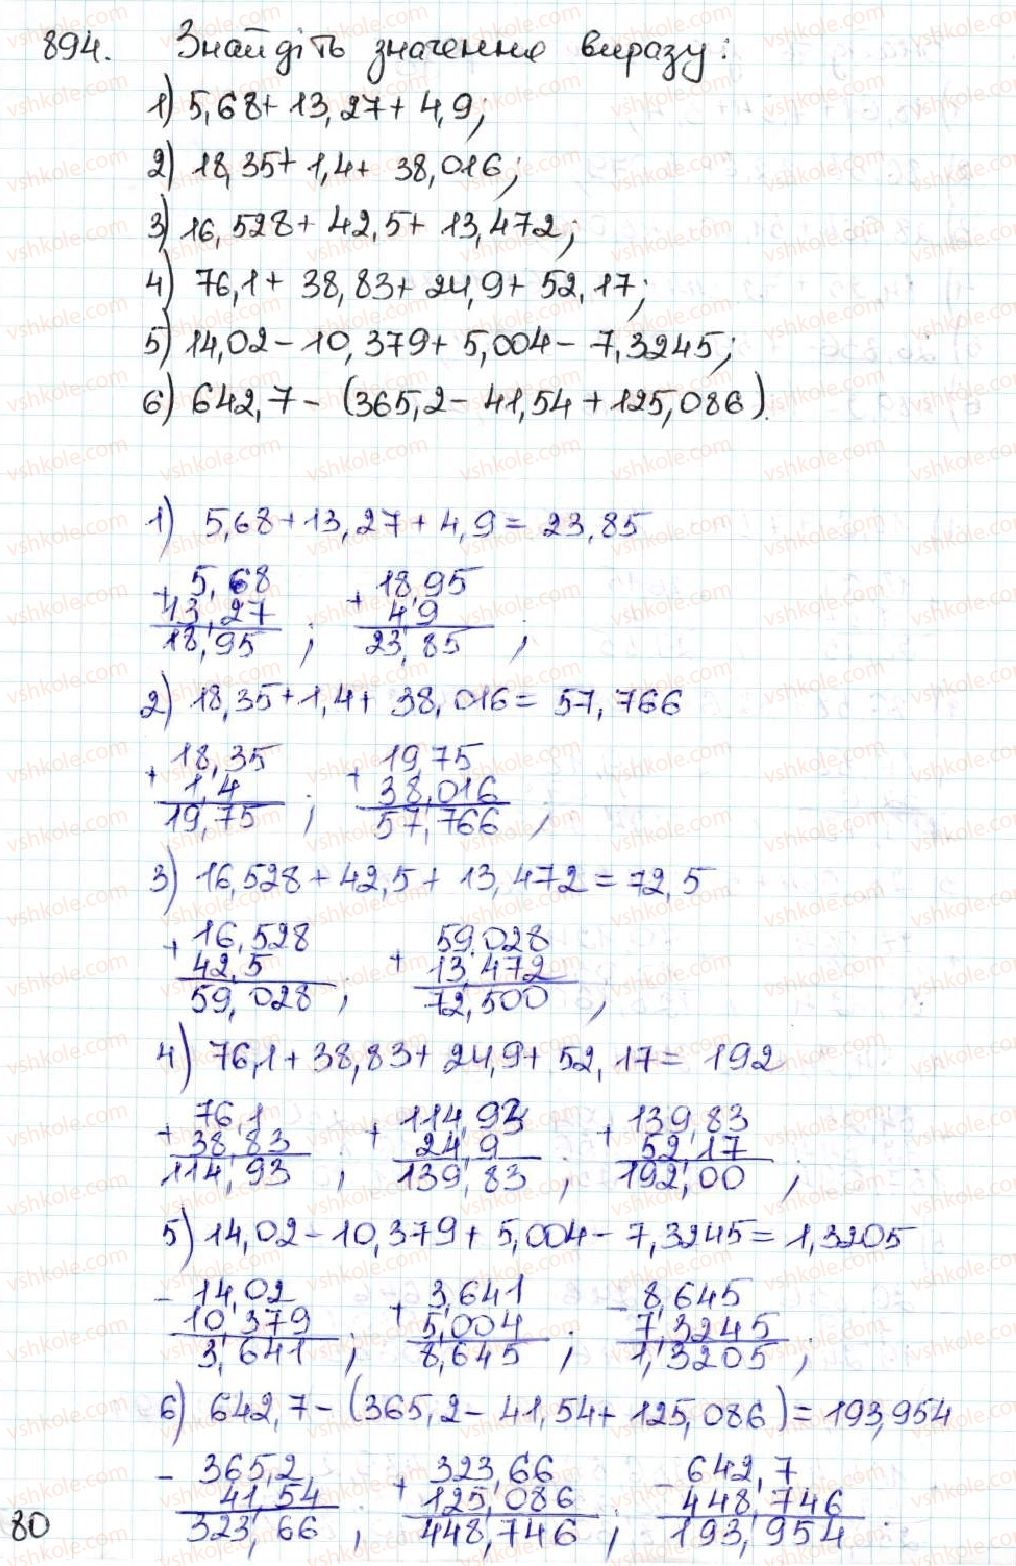 894. Знайдіть значення виразу:
1) 5,68 + 13,27 + 4,9;
2) 18,35 + 1,4 + 38,016;
3) 16,528 + 42,5 + 13,472;
4) 76,1 + 38,83 + 24,9 + 52,17;
5) 14,02 - 10,379 + 5,004 - 7,3245;
6) 642,7 - (365,2 - 41,54 + 125,086).
1) 5,68 + 13,27 + 4,9 = 23,85
+ 5,68 + 18,95
13,27 4,9
18,95 ; 23,85 ;
2) 18,35 + 1,4 + 38,016 = 57,766
+ 18,35 + 19,75
1,4 38,016
19,75 ; 57,766 ;
3) 16,528 + 42,5 + 13,472 = 72,5
+ 16,528 + 59,028
42,5 13,472
59,028 ; 72,500 ;
4) 76,1 + 38,83 + 24,9 + 52,17 = 192
+ 76,1 + 114,93 + 139,83
38,83 24,9 52,17
114,93 ; 139,83 ; 192,00 ;
5) 14,02 - 10,379 + 5,004 - 7,3245 = 1,3205
- 14,02 + 3,641 - 8,645
10,379 5,004 7,3245
3,641 ; 8,645 ; 1,3205 ;
6) 642,7 - (365,2 - 41,54 + 125,086) = 193,954
- 365,2 + 323,66 - 642,7
41,54 125,086 448,746
323,66 ; 448,746 ; 193,954 .
80